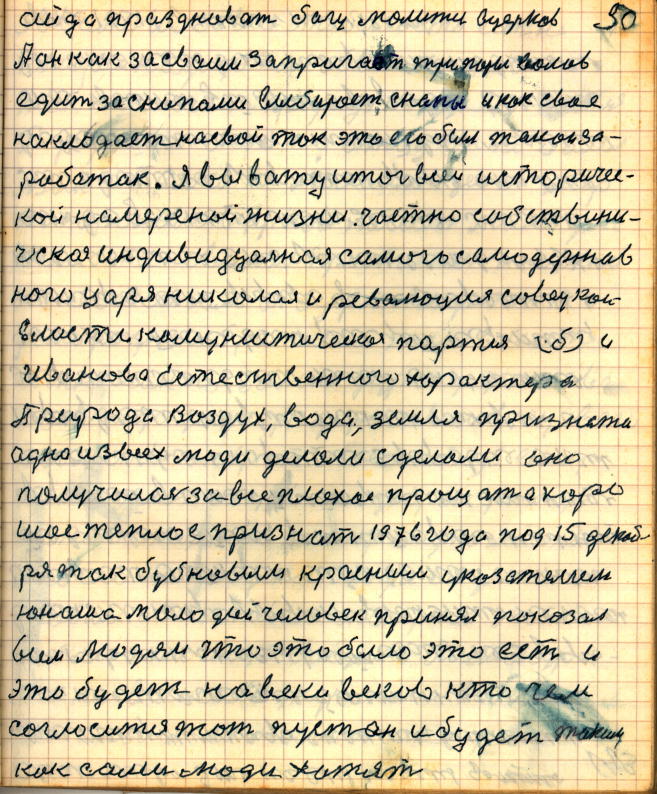 ай да праздноват богу молитц вцерков 90
Аон как засваим запригает три пары волов
едит заснопами выбирает снапы и как свое
накладает насвой ток это его был такой за-
работак. Я вывату итог всей историчес-
кой намереной жизни. частно собствини-
ческая индивидуалная самого самодержав
ного царя николая и революция совецкой
власти комунистическая партия (б) и
Иванова естественного характера
Природа Воздух, вода, земля призната
одно из всех люди делали сделали оно
получилос за все плохое прощат а хоро
шое теплое признат 1976 года под 15 декаб-
ря так бубновым красным указателем
юнаша молодый человек принял показал
всем людям что это было это ест и
это будет на веки веков кто чем
соглоситя тот пуст он и будет таким
как сами люди хотят